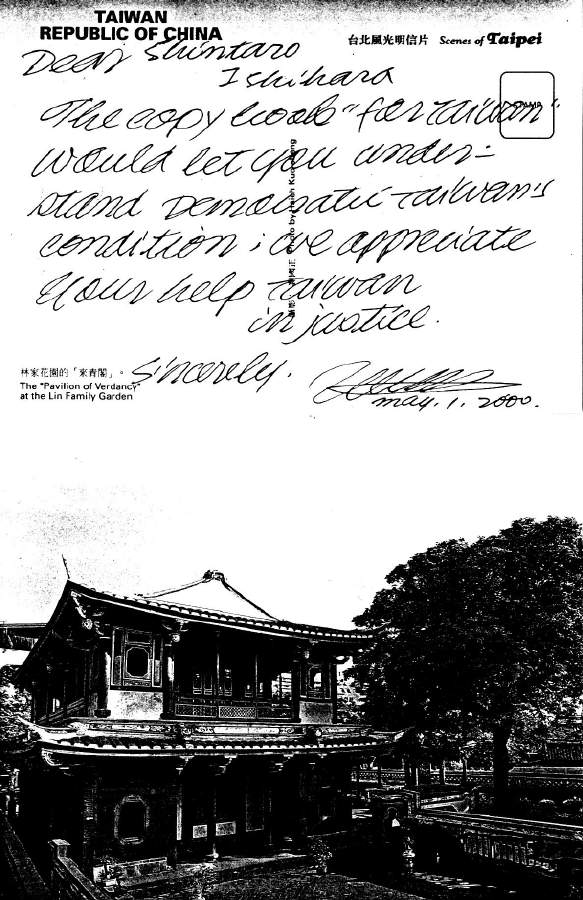 TAIWAN
REPUBLIC OF CHINA
台北風光明信片 Scenes of Taipei
STAMP
Dear Shintaro
Ishihara
The copy book "for Taiwan"
would let you under-
stand Democratic Taiwan's
condition; we appreciate
your help Taiwan
in justice.
Sincerely.
may. 1. 2000.
林家花園的「來青閣」。
The "Pavilion of Verdancy"
at the Lin Family Garden
Photo by